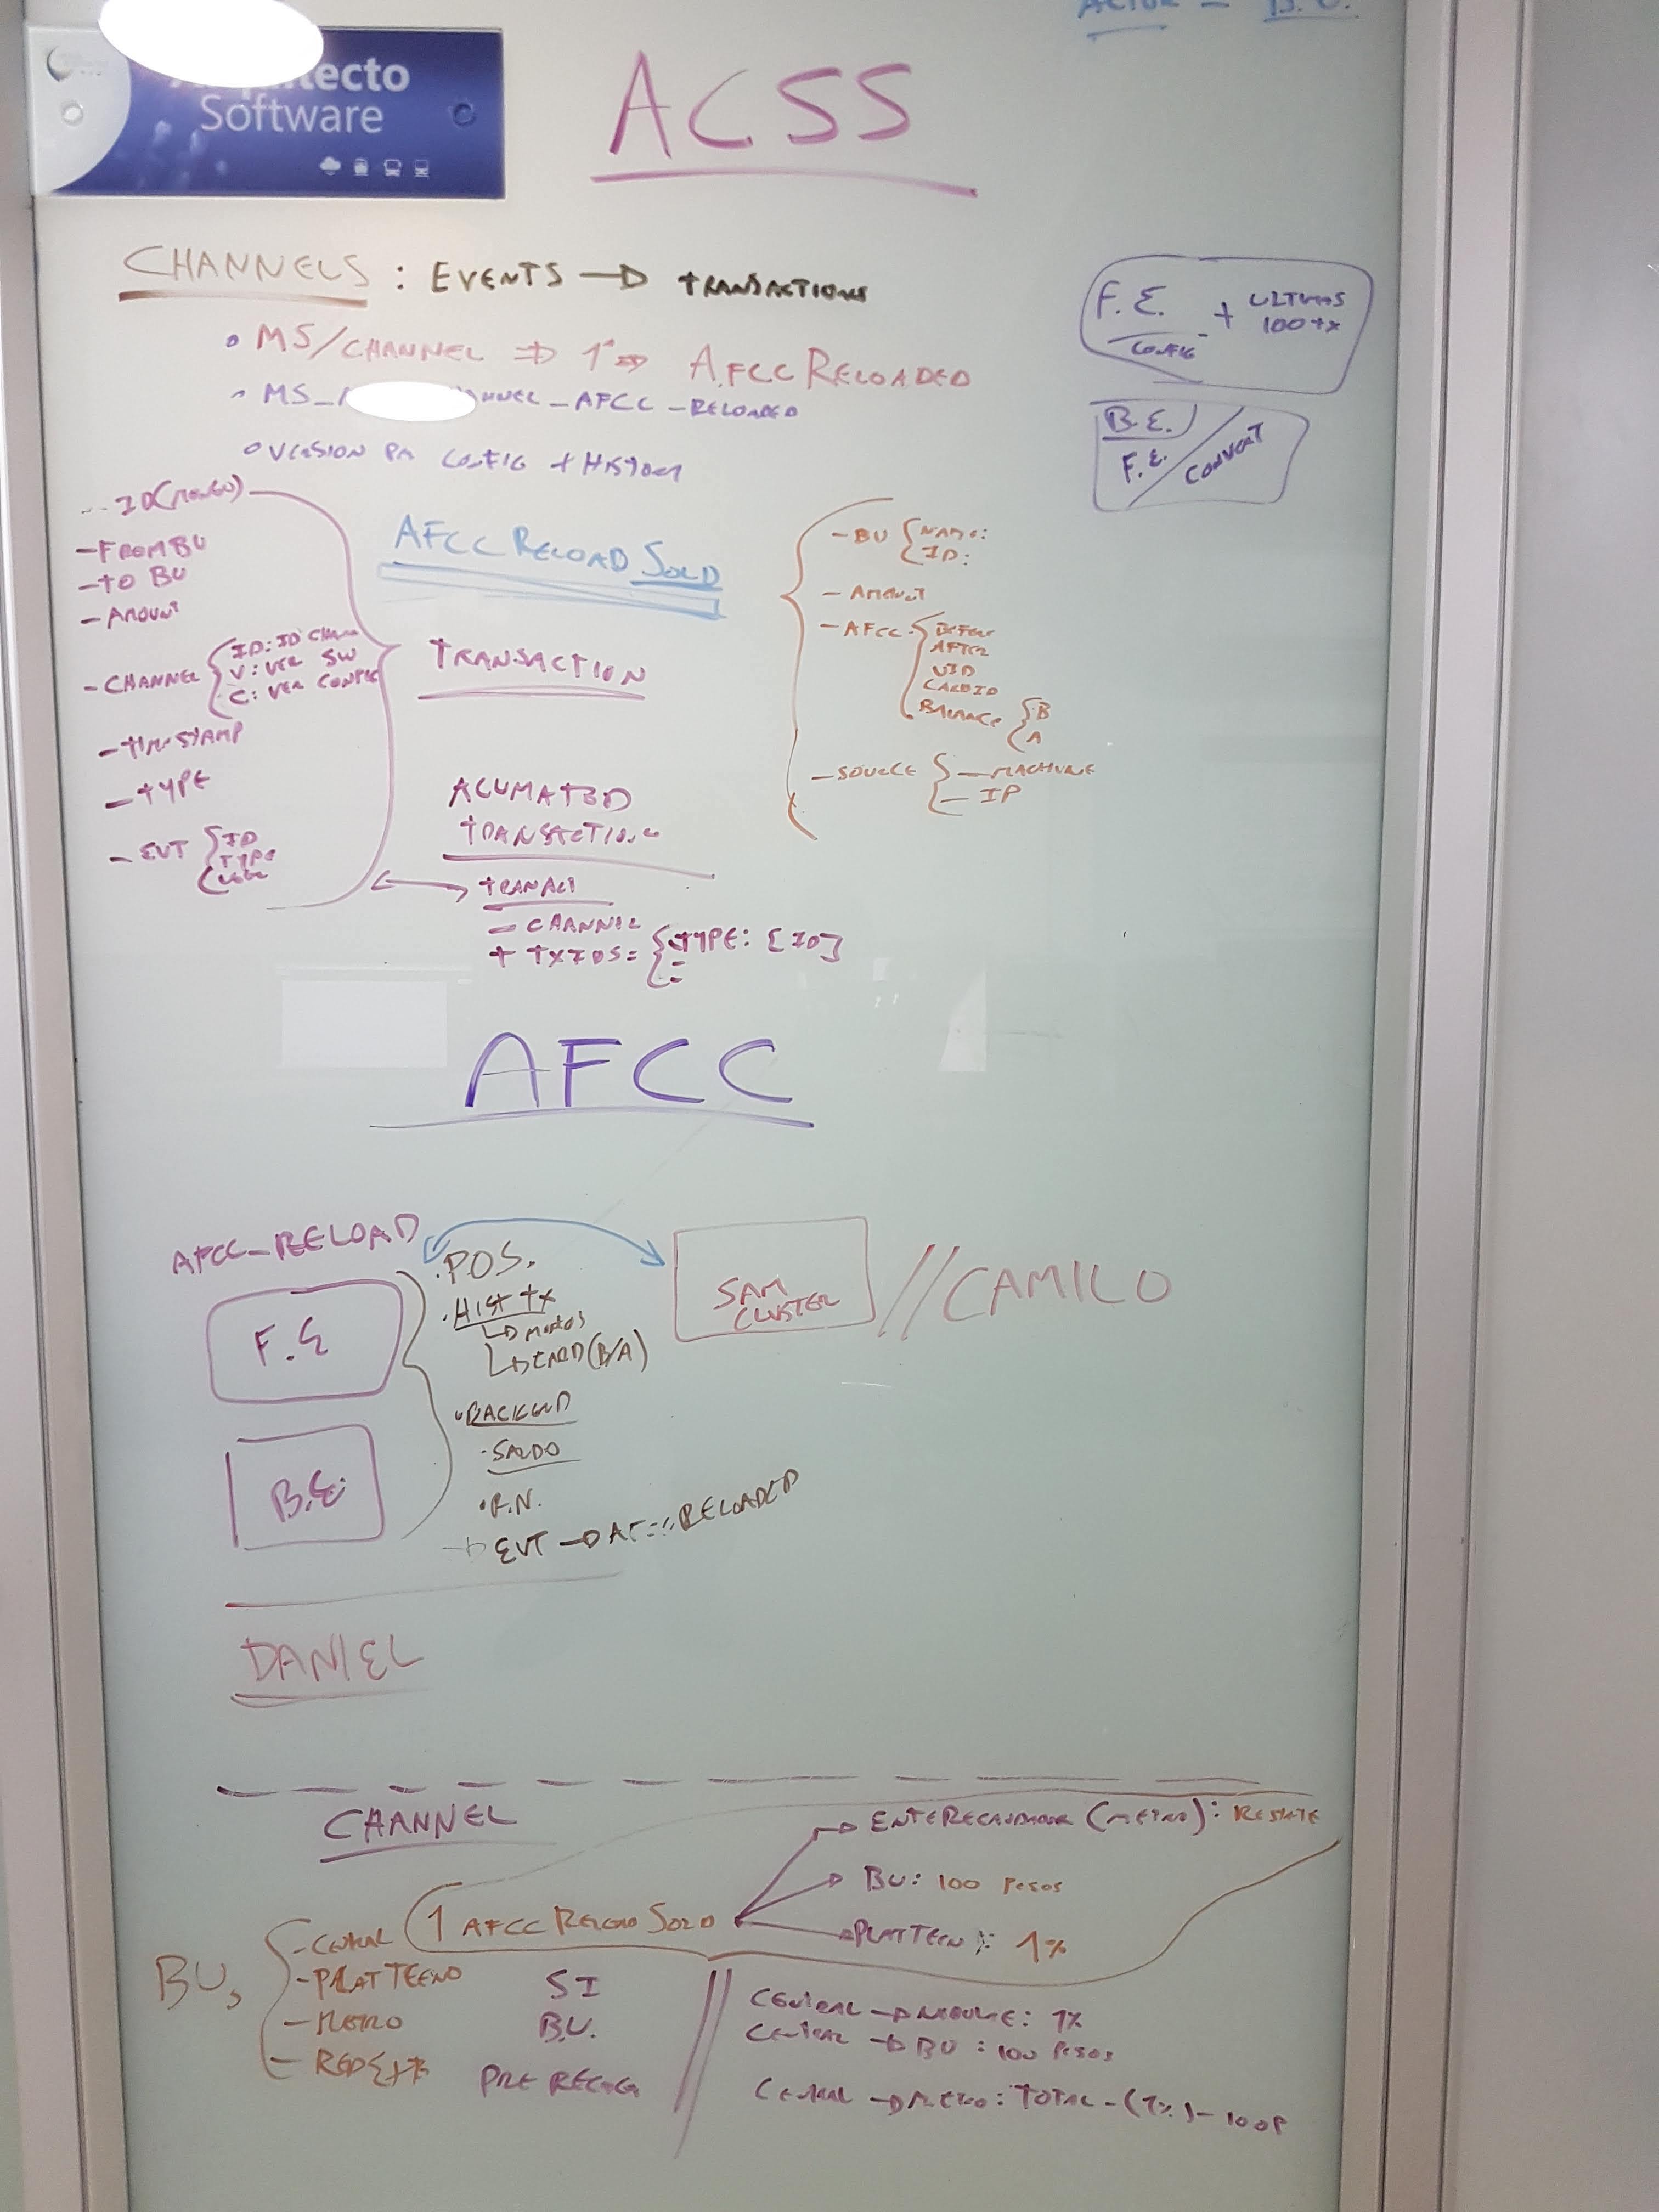 ACTOR - B.O.
tecto
Software
ACSS
CHANNELS : EVENTS → TRANSACTIONS
• MS/CHANNEL ⇒ 1° ⇒ AFCC RELOADED
• MS_ NNEL_AFCC_RELOADED
○ VERSION CONFIG + HISTORY
F.E. + ULTIMAS
CONFIG 100 tx
B.E.
F.E. / CONVERT
-- ID(MONGO)
- FROM BU
- TO BU
- AMOUNT
- CHANNEL { ID: ID CHAN
V: VER SW
C: VER CONFIG
- TIMESTAMP
- TYPE
- EVT { ID
TYPE
AFCC RELOAD SOLD
TRANSACTION
ACUMATED
TRANSACTIONS
TRANACT
- CHANNEL
+ TXIDS = { TYPE: [ID]
- BU { NAME:
ID:
- AMOUNT
- AFCC { BEFORE
AFTER
UID
CARDID
BALANCE { B
A
- SOURCE { - MACHINE
- IP
AFCC
AFCC_RELOAD
F.E
B.E.
• P.O.S.
• HIST tx
↳ MONTOS
↳ CARD (B/A)
• BACKEND
• SALDO
• R.N.
→ EVT → AFCC RELOADED
SAM
CLUSTER
// CAMILO
DANIEL
CHANNEL
→ ENTE RECAUDADOR (METRO): RESTANTE
→ BU: 100 PESOS
→ PLAT TECN : 1%
1 AFCC RELOAD SOLD
BUs { - CENTRAL
- PLAT TECNO
- METRO
- REDEXT
SI
B.U.
PRE RECARG
CENTRAL → : 1%
CENTRAL → BU : 100 PESOS
CENTRAL → METRO : TOTAL - (1%) - 100P